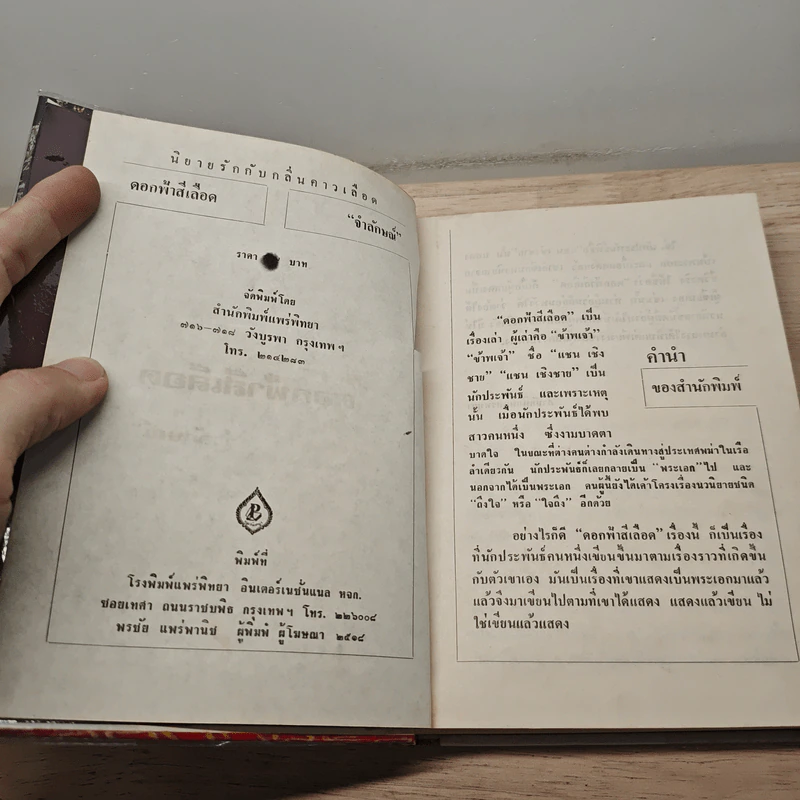 นิยายรักกับกลิ่นคาวเลือด
ดอกฟ้าสีเลือด
“จำลักษณ์”
ราคา บาท
จัดพิมพ์โดย
สำนักพิมพ์แพร่พิทยา
๗๑๖—๗๑๘ วังบูรพา กรุงเทพฯ
โทร. ๒๑๔๒๘๓
พิมพ์ที่
โรงพิมพ์แพร่พิทยา อินเตอร์เนชั่นแนล หจก.
ซอยเทศา ถนนราชบพิธ กรุงเทพฯ โทร. ๒๒๖๐๐๘
พรชัย แพร่พานิช ผู้พิมพ์ ผู้โฆษณา ๒๕๑๘
คำนำ
ของสำนักพิมพ์
“ดอกฟ้าสีเลือด” เป็น
เรื่องเล่า ผู้เล่าคือ “ข้าพเจ้า”
“ข้าพเจ้า” ชื่อ “แชน เชิง
ชาย” “แชน เชิงชาย” เป็น
นักประพันธ์ และเพราะเหตุ
นั้น เมื่อนักประพันธ์ได้พบ
สาวคนหนึ่ง ซึ่งงามบาดตา
บาดใจ ในขณะที่ต่างคนต่างกำลังเดินทางสู่ประเทศพม่าในเรือ
ลำเดียวกัน นักประพันธ์ก็เลยกลายเป็น “พระเอก” ไป และ
นอกจากได้เป็นพระเอก คนผู้นี้ยังได้เค้าโครงเรื่องนวนิยายชนิด
“ถึงใจ” หรือ “ใจถึง” อีกด้วย
อย่างไรก็ดี “ดอกฟ้าสีเลือด” เรื่องนี้ ก็เป็นเรื่อง
ที่นักประพันธ์คนหนึ่งเขียนขึ้นมาตามเรื่องราวที่เกิดขึ้น
กับตัวเขาเอง มันเป็นเรื่องที่เขาแสดงเป็นพระเอกมาแล้ว
แล้วจึงมาเขียนไปตามที่เขาได้แสดง แสดงแล้วเขียน ไม่
ใช่เขียนแล้วแสดง